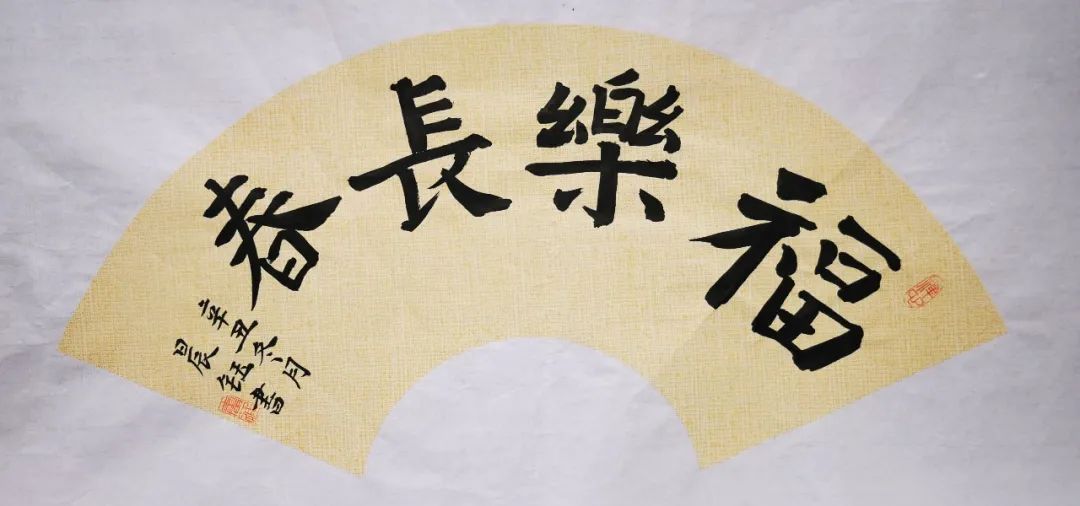 福樂長春
辛丑冬月
晨钰書